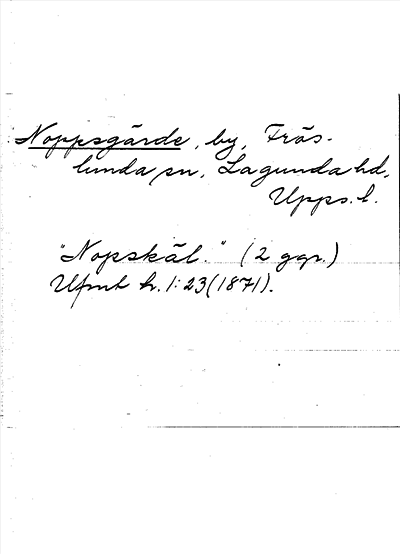 Noppsgärde, by, Frös-
lunda sn, Lagunda hd,
Upps. l.
"Nopskäl." (2 ggr.)
Ufmt h. 1:23 (1871).